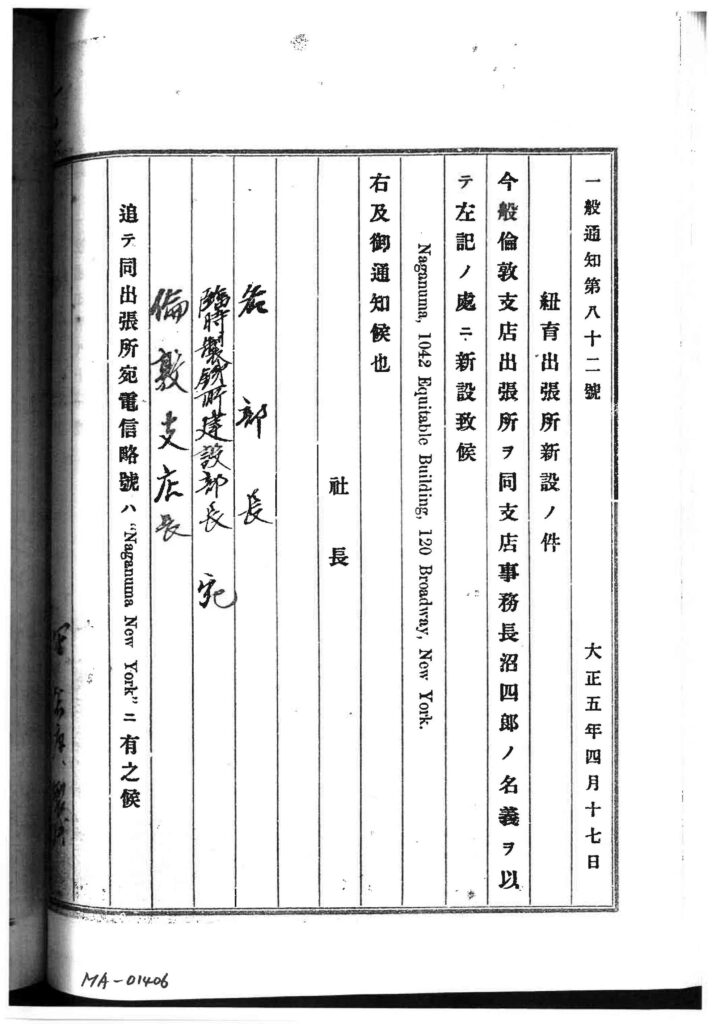 一般通知第八十二號 大正五年四月十七日
紐育出張所新設ノ件
今般倫敦支店出張所ヲ同支店事務長沼四郎ノ名義ヲ以
テ左記ノ處ニ新設致候
Naganuma, 1042 Equitable Building, 120 Broadway, New York.
右及御通知候也
社長
各部長
臨時製鉄所建設部長 宛
倫敦支店長
追テ同出張所宛電信略號ハ "Naganuma New York" ニ有之候
MA-01406